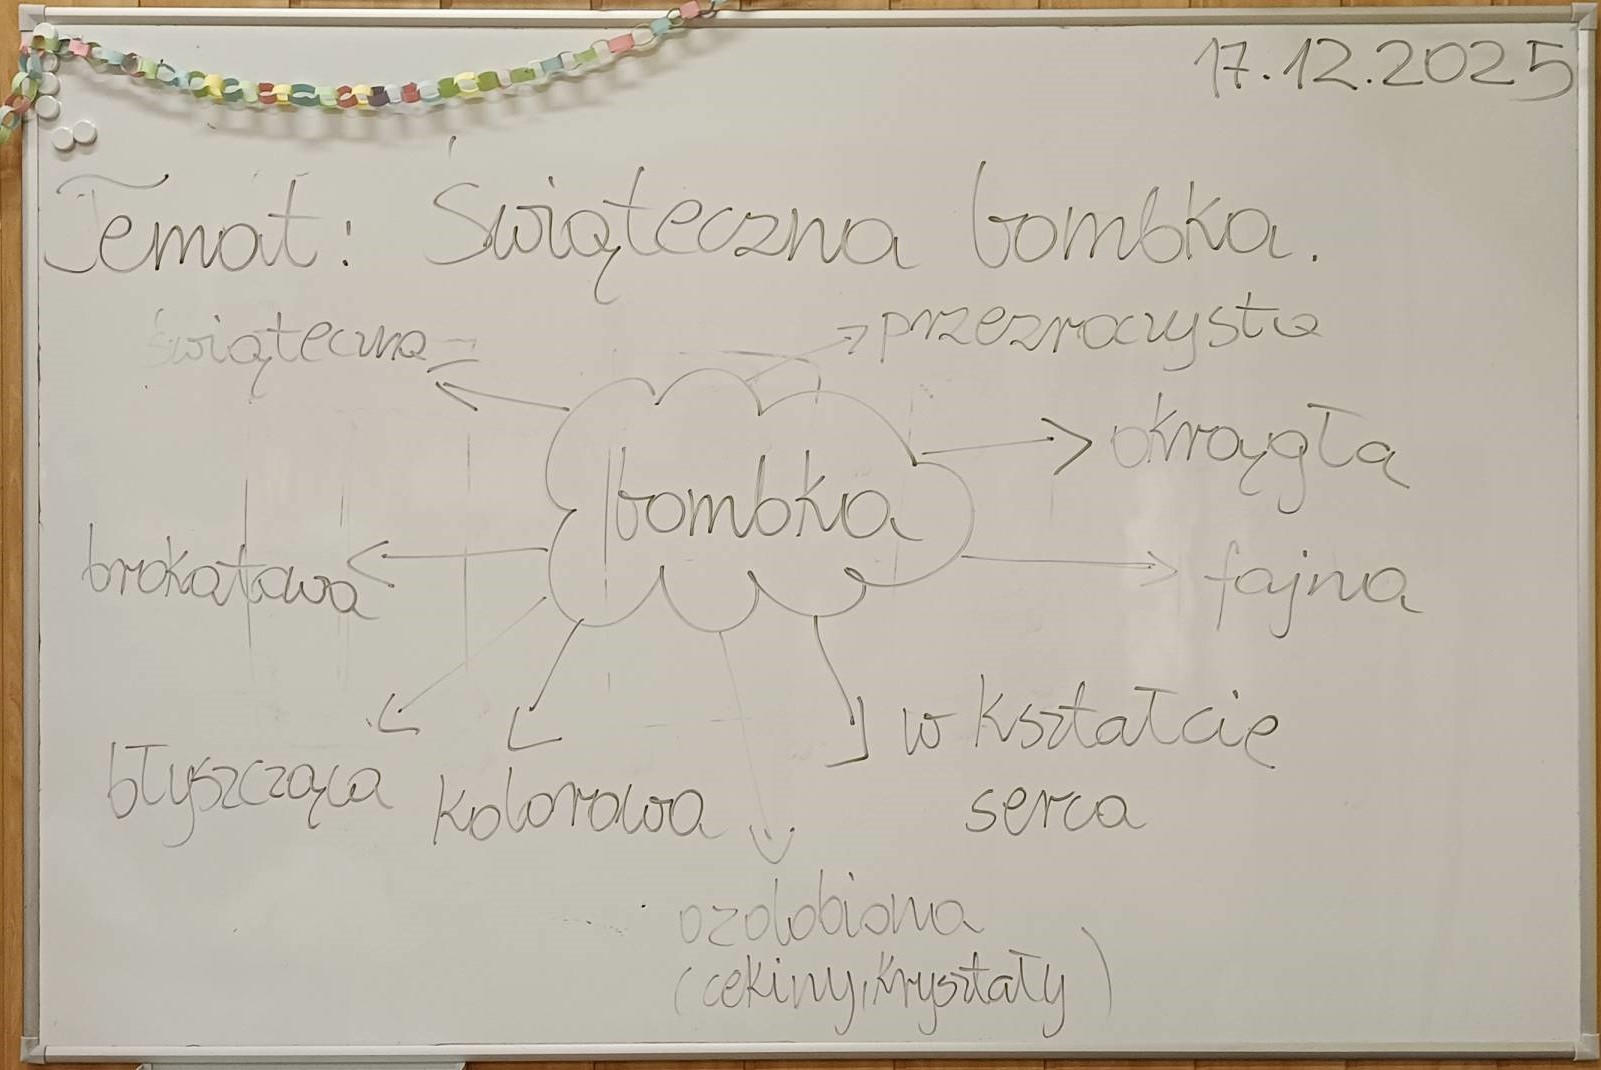 17.12.2025
Temat: Świąteczna bombka.
świąteczna
przezroczysta
okrągła
bombka
brokatowa
fajna
błyszcząca
kolorowa
w kształcie
serca
ozdobiona
(cekiny, kryształy)